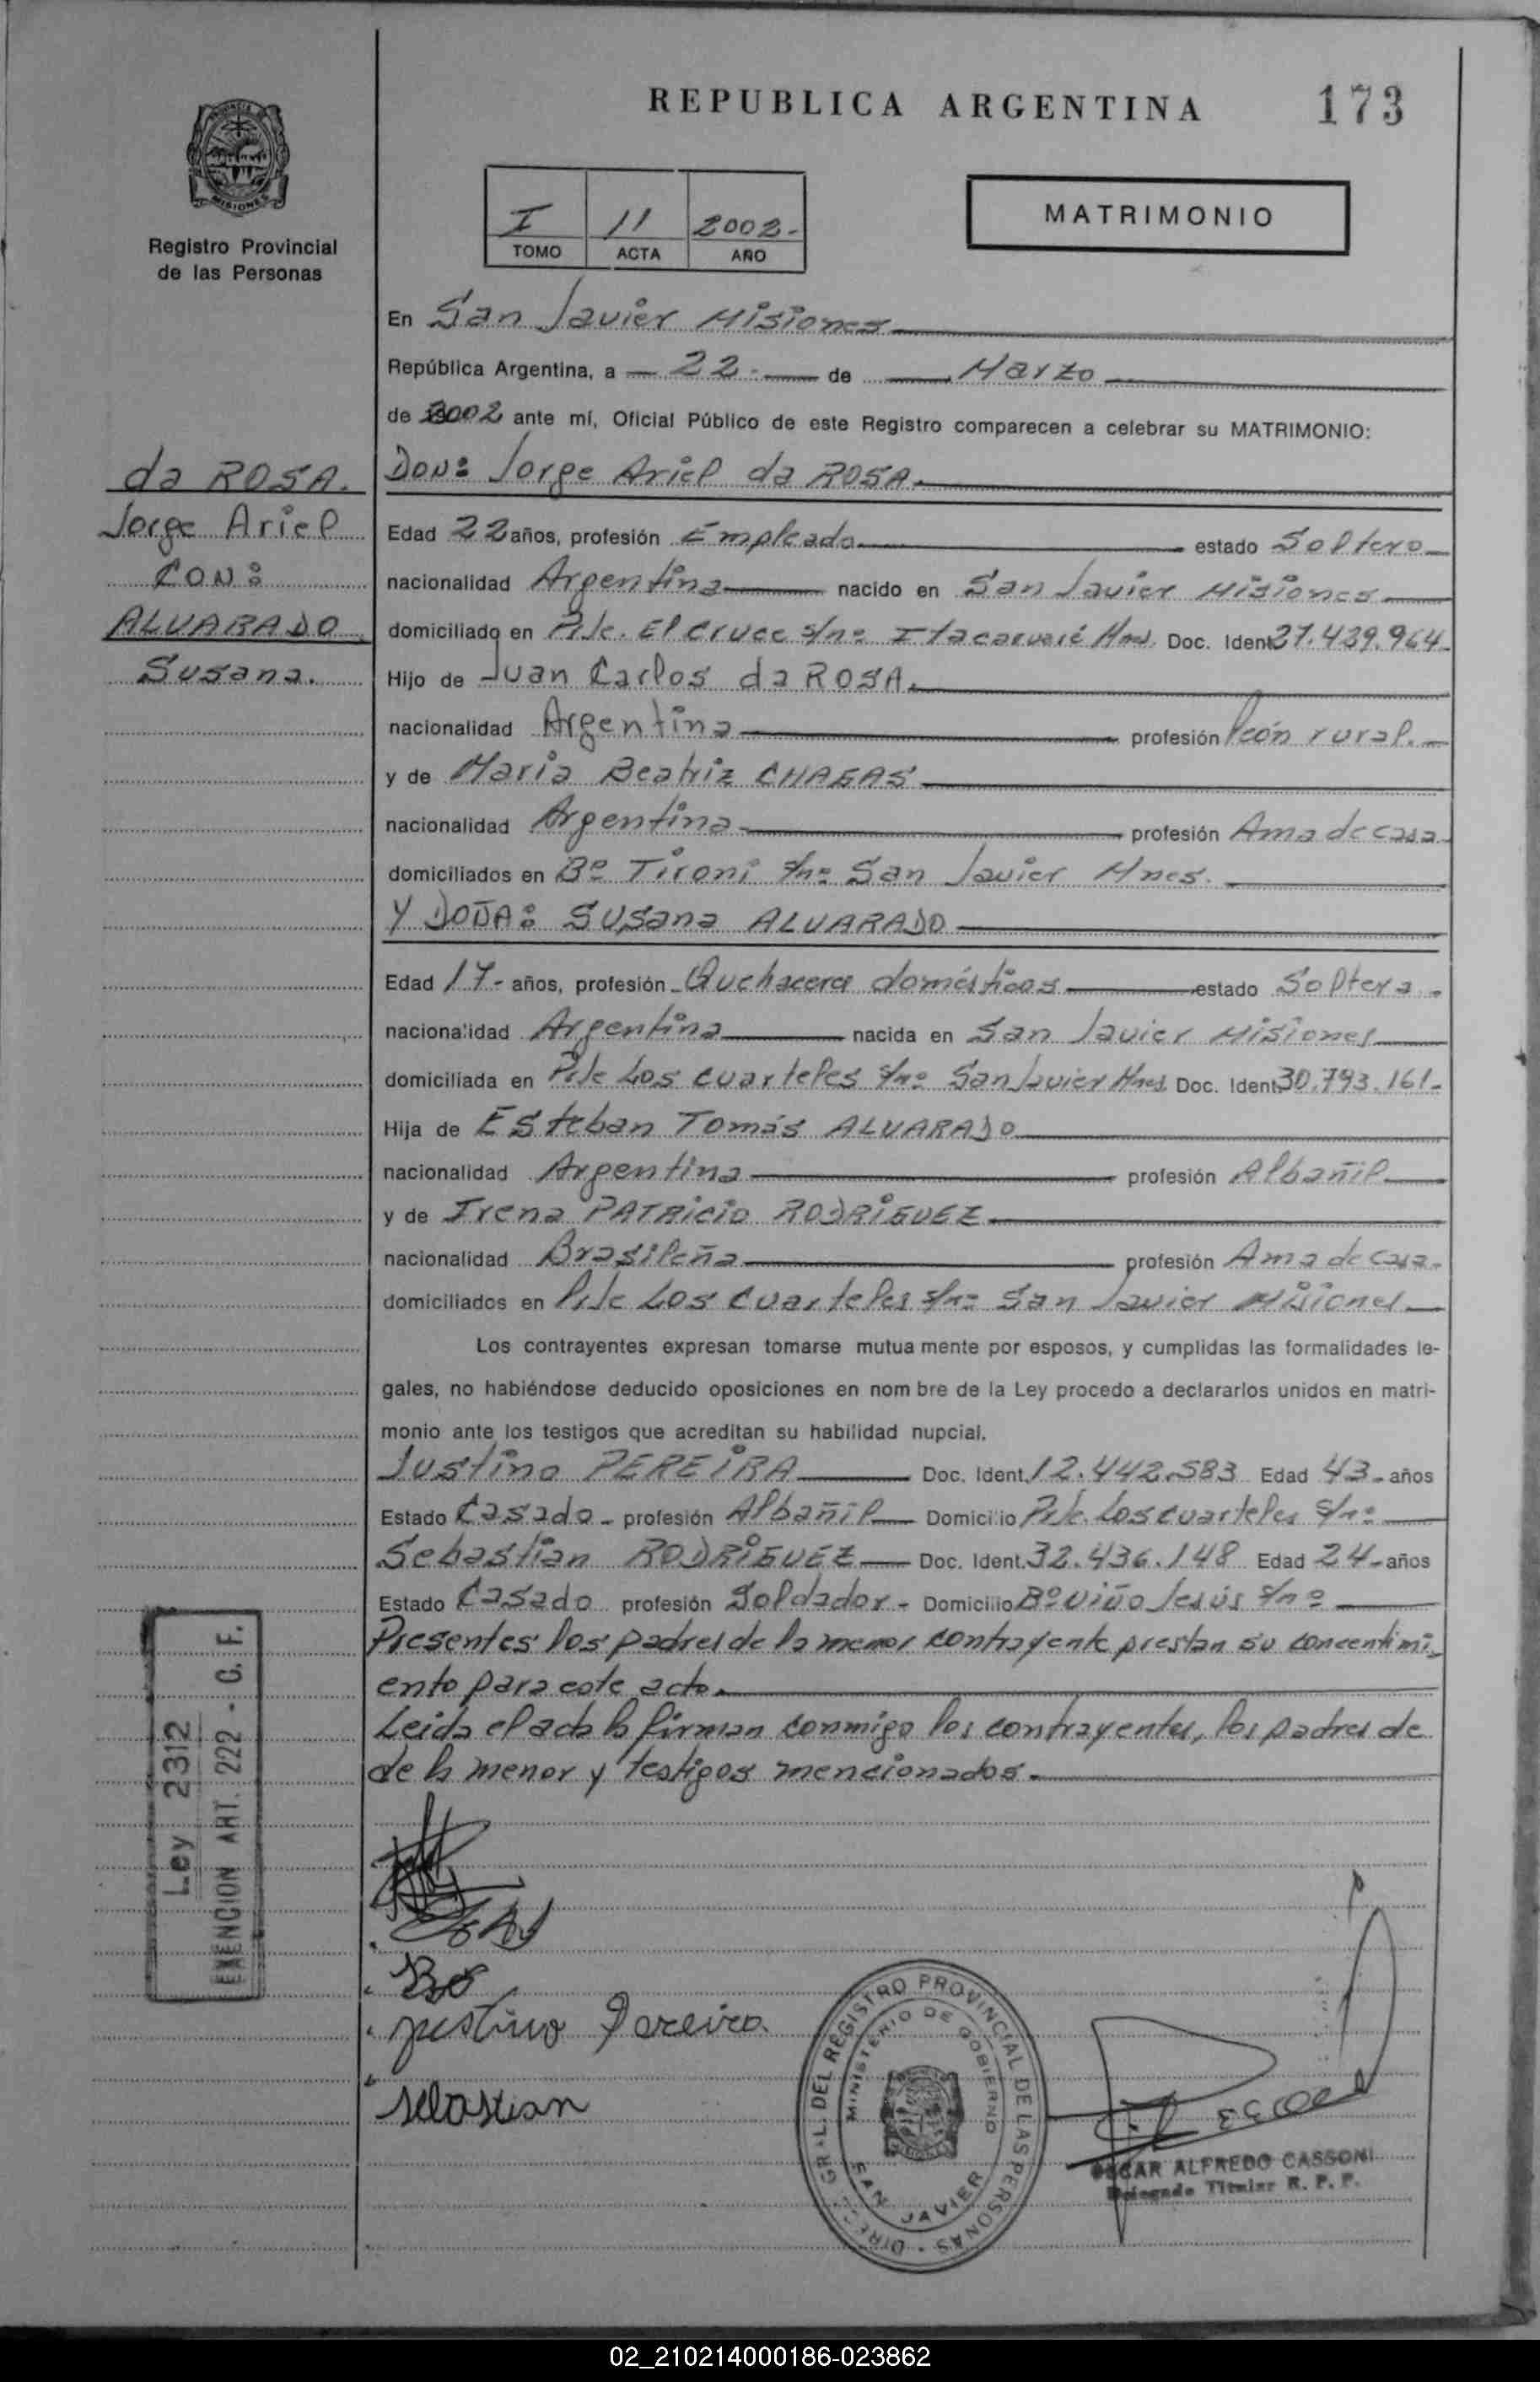 REPUBLICA ARGENTINA
173
PROVINCIA
MISIONES
Registro Provincial
de las Personas
I 11 2002-
TOMO ACTA AÑO
MATRIMONIO
En San Javier Misiones
República Argentina, a 22- de Marzo
de 2002 ante mí, Oficial Público de este Registro comparecen a celebrar su MATRIMONIO:
da ROSA.
Jorge Ariel
CON:
ALVARADO
Susana.
DON: Jorge Ariel da ROSA.
Edad 22 años, profesión Empleado estado Soltero
nacionalidad Argentina nacido en San Javier Misiones
domiciliado en Pje. El Cruce s/nº Itacaruaré Mnes. Doc. Ident. 27.429.964-
Hijo de Juan Carlos da ROSA.
nacionalidad Argentina profesión Peón rural.
y de Maria Beatriz CHAGAS
nacionalidad Argentina profesión Ama de casa
domiciliados en Bº Tironi s/nº San Javier Mnes.
Y DOÑA: Susana ALVARADO
Edad 17- años, profesión Quehaceres domésticos estado Soltera.
nacionalidad Argentina nacida en San Javier Misiones
domiciliada en Pje Los cuarteles s/nº San Javier Mnes Doc. Ident. 30.793.161-
Hija de Esteban Tomás ALVARADO
nacionalidad Argentina profesión Albañil
y de Irena PATRICIO RODRIGUEZ
nacionalidad Brasileña profesión Ama de casa.
domiciliados en Pje Los Cuarteles s/nº San Javier Misiones
Los contrayentes expresan tomarse mutua mente por esposos, y cumplidas las formalidades le-
gales, no habiéndose deducido oposiciones en nom bre de la Ley procedo a declararlos unidos en matri-
monio ante los testigos que acreditan su habilidad nupcial.
Justino PEREIRA Doc. Ident. 12.442.583 Edad 43- años
Estado Casado- profesión Albañil Domicilio Pje. Los cuarteles s/nº
Sebastian RODRIGUEZ Doc. Ident. 32.436.148 Edad 24- años
Estado Casado profesión Soldador- Domicilio Bº Niño Jesús s/nº
Presentes los padres de la menor contrayente prestan su concentimi-
ento para este acto.
Leida el acta la firman conmigo los contrayentes, los padres de
de la menor y testigos mencionados.-
Ley 2312
EXENCION ART. 222 - C. F.
justino Pereira
sebastian
DIREC. GRAL. DEL REGISTRO PROVINCIAL DE LAS PERSONAS
MINISTERIO DE GOBIERNO
SAN JAVIER
OSCAR ALFREDO CASSONI
Delegado Titular R. P. P.
02_210214000186-023862